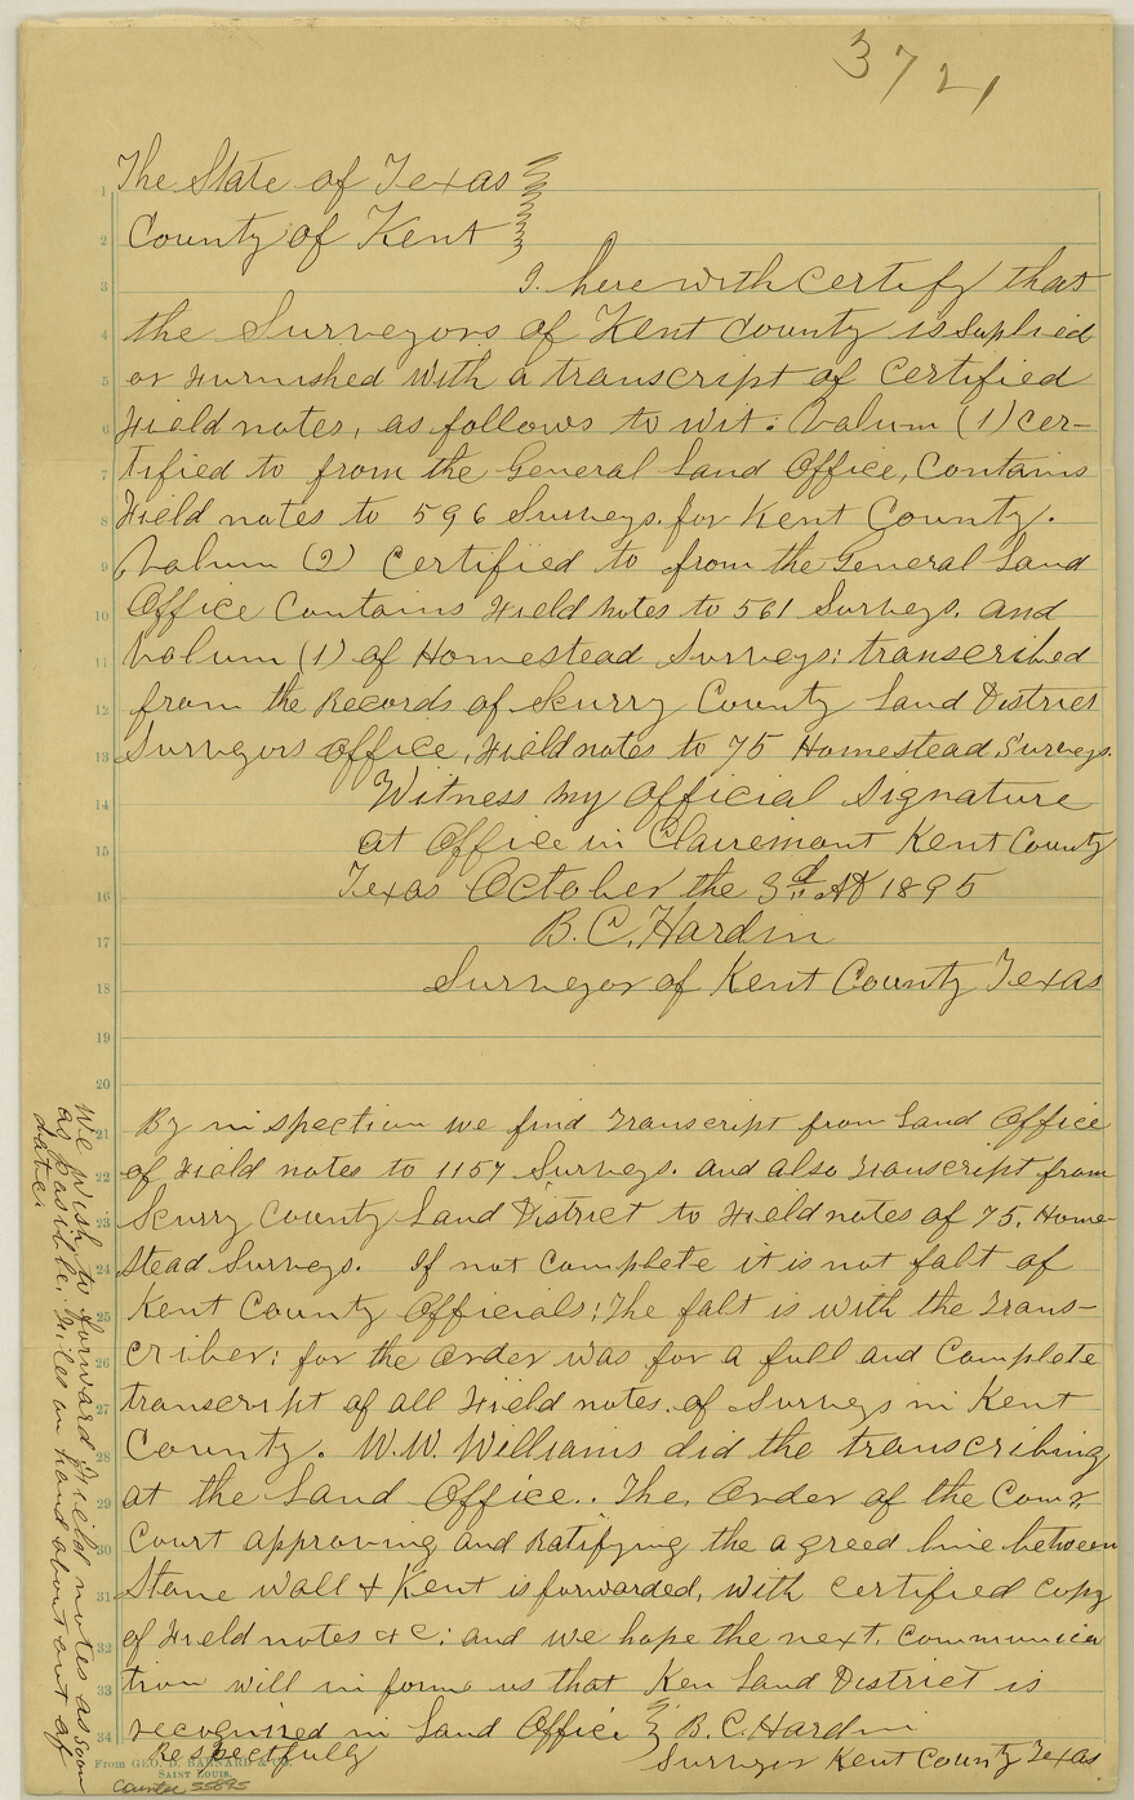 3721
The State of Texas
County of Kent
I. here with certify that
the Surveyors of Kent County is Suplied
or Furnished with a transcript of Certified
Field notes, as follows to wit: Valum (1) cer-
tified to from the General Land Office, Contains
Field notes to 596 Surveys. for Kent County.
Valum (2) Certified to from the General Land
Office Contains Field notes to 561 Surveys. and
Valum (1) of Homestead Surveys: transcribed
from the Records of Scurry County Land District
Surveyors office, Field notes to 75 Homestead Surveys.
Witness my official Signature
at Office in Clairemont Kent County
Texas October the 3d AD 1895
B. C. Hardin
Surveyor of Kent County Texas
By inspection we find Transcript from Land Office
of Field notes to 1157 Surveys. and also Transcript from
Scurry County Land District to Field notes of 75. Home-
stead Surveys. If not Complete it is not falt of
Kent County Officials; The falt is with the Trans-
criber: for the order was for a full and Complete
transcript of all Field notes. of Surveys in Kent
County. W. W. Williams did the transcribing
at the Land Office.. The, Order of the Comr
Court approving and Ratifying the agreed line between
Stone wall & Kent is forwarded, with certified Copy
of Field notes & C: and we hope the next. Communica
tion will in forme us that Ken Land District is
recognized in Land Office
B. C. Hardin
Respectfully
Surveyor Kent County Texas
We wish to forward Field notes as soon
as posible. Files on hand about out of
date.
From GEO. D. BARNARD & CO.
SAINT LOUIS.
Counter 55895
1
2
3
4
5
6
7
8
9
10
11
12
13
14
15
16
17
18
19
20
21
22
23
24
25
26
27
28
29
30
31
32
33
34